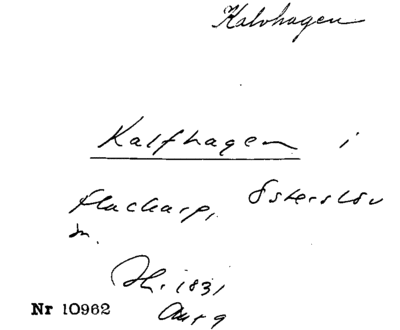 Kalvhagen
Kalfhagen i
Flackarp, Österslöv
sn.
Sk. 1831
Nr 10962